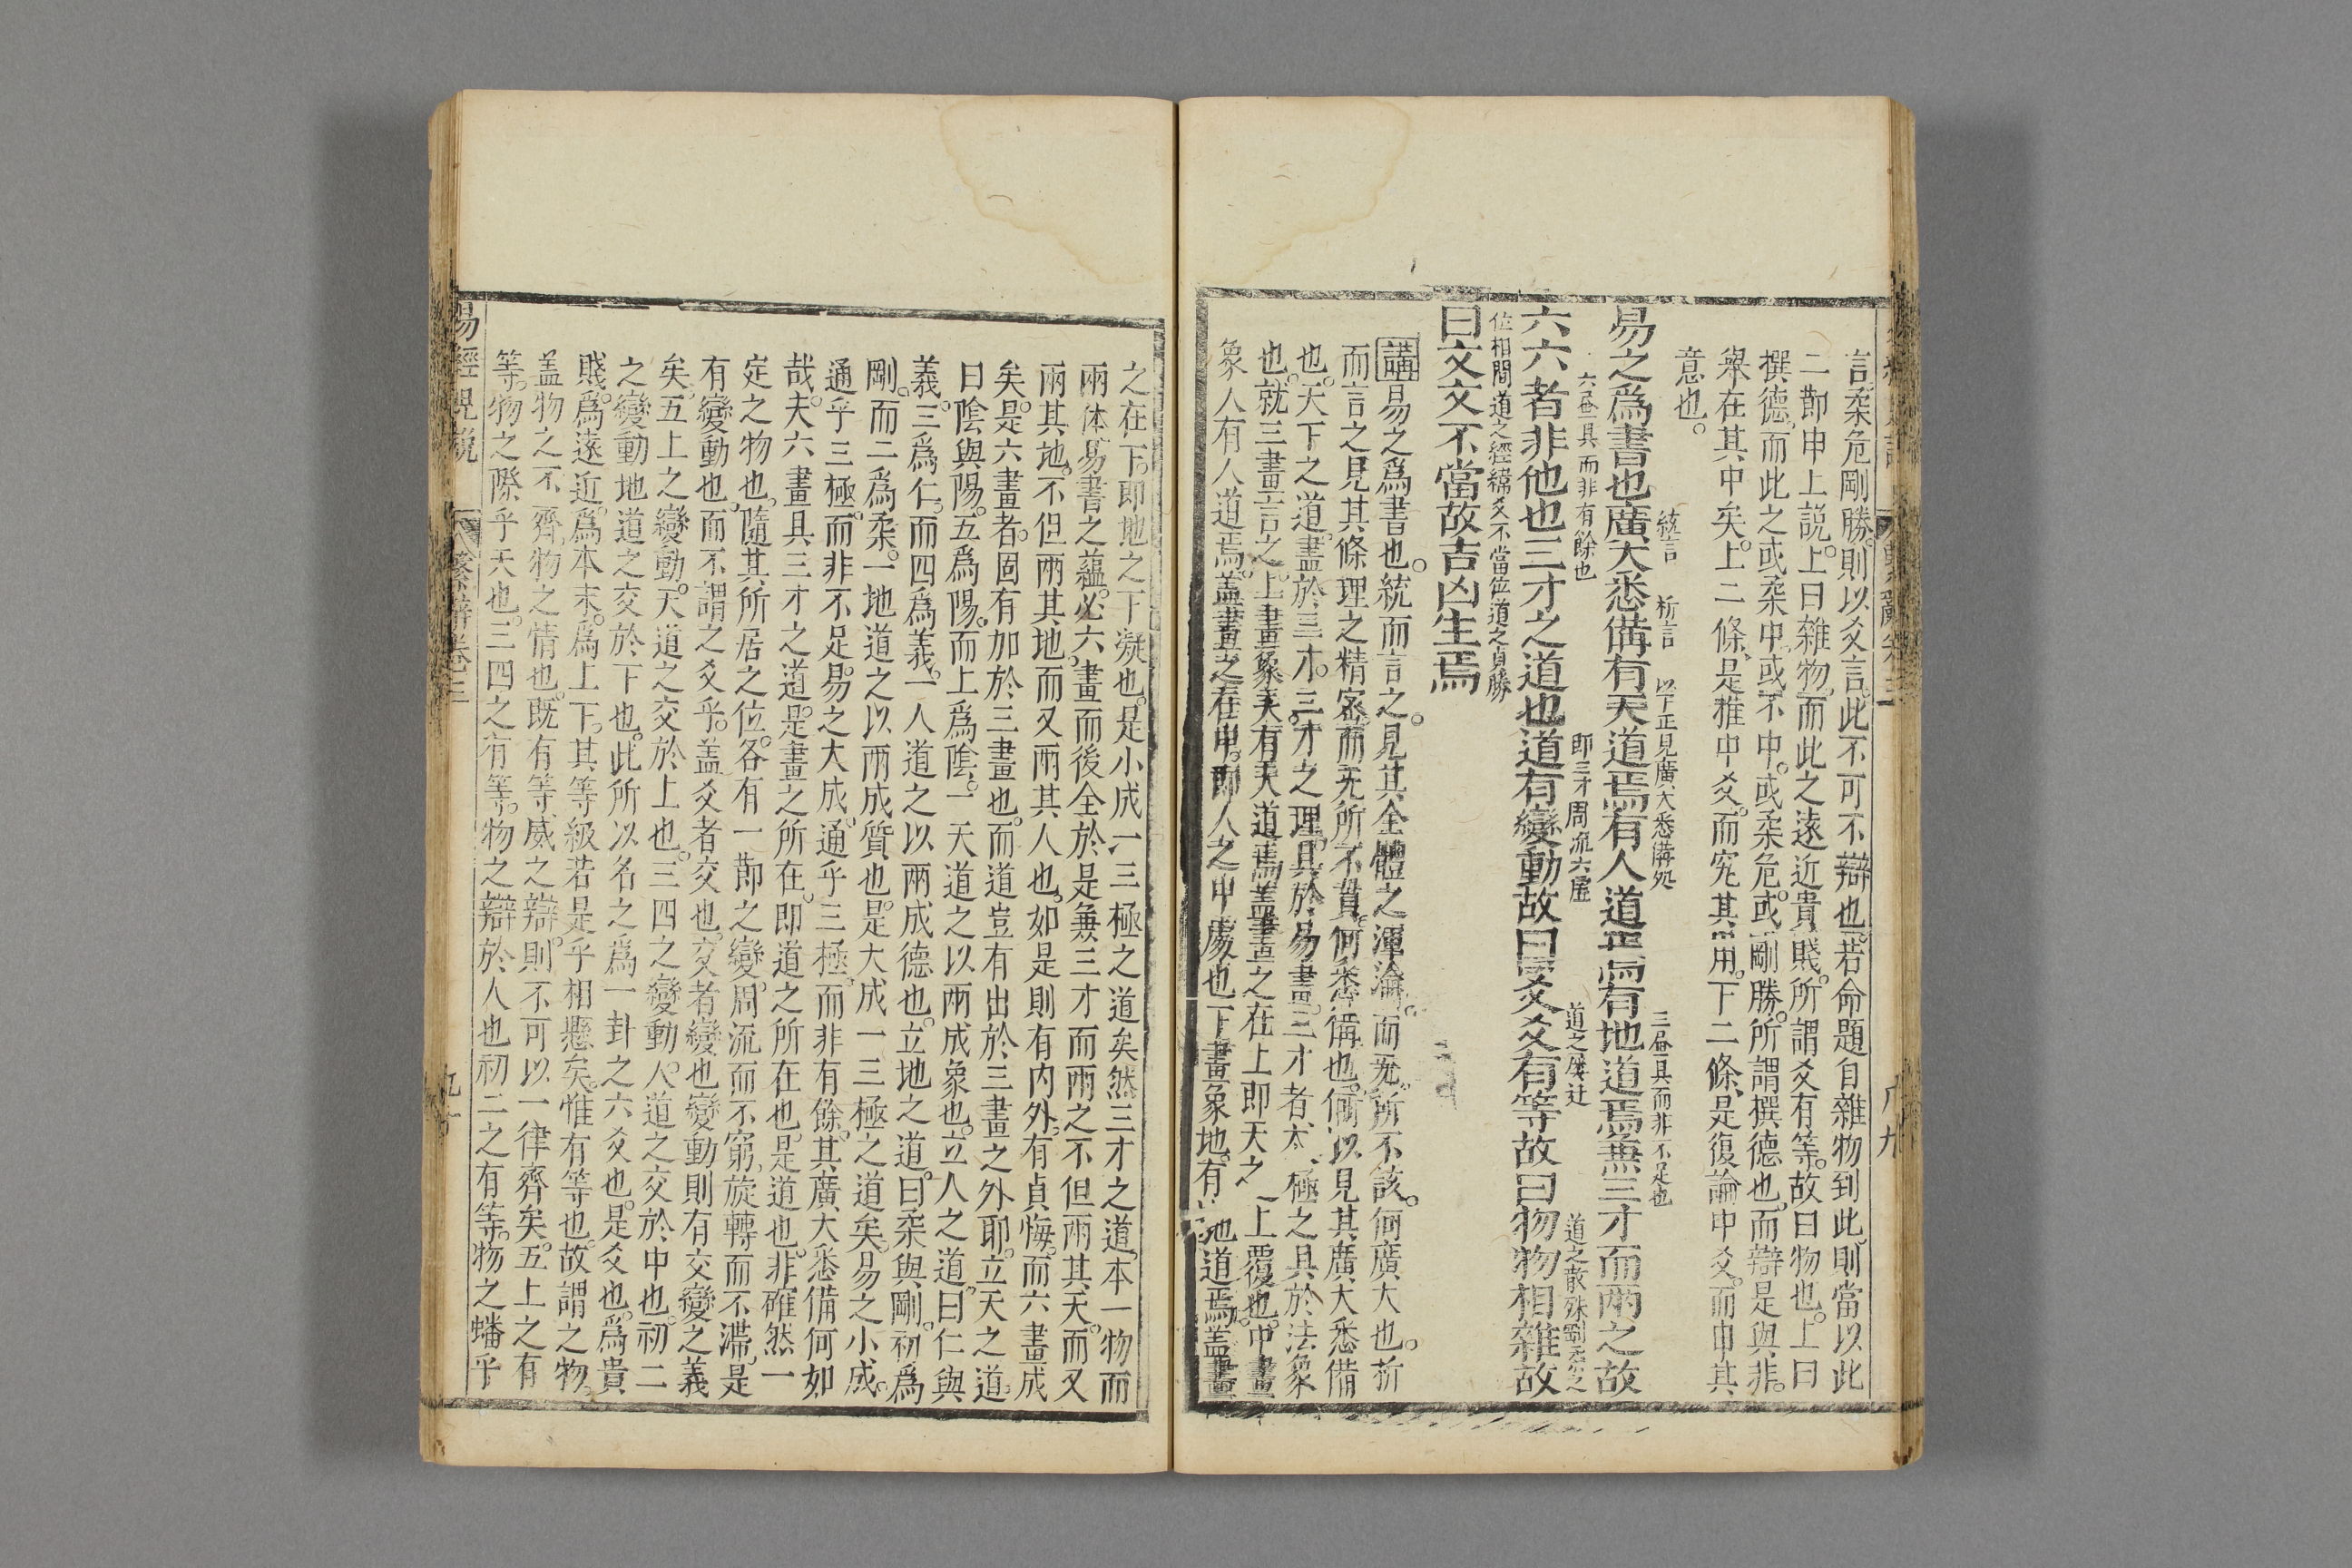 言柔危剛勝。則以爻言。此不可不辯也。若命題自雜物到此。則當以此
二節申上説。上曰雜物。而此之遠近貴賤。所謂爻有等。故曰物也。上曰
撰德。而此之或柔中。或不中。或柔危。或剛勝。所謂撰德也。而辯是與非。
舉在其中矣。上二條、是推中爻。而究其用。下二條、是復論中爻。而申其
意也。
統言 析言 以下正見廣大悉備処 三畫具而非不足也
易之爲書也廣大悉備有天道焉有人道焉有地道焉兼三才而兩之故
六畫具而非有餘也 即三才周流六虛 道之屢迁 道之散殊剛柔之
六六者非他也三才之道也道有變動故曰爻爻有等故曰物物相雜故
位相間道之經緯爻不當位道之貞勝
曰文文不當故吉凶生焉
講易之爲書也。統而言之。見其全體之渾淪。而无所不該。何廣大也。析
而言之。見其條理之精密。而无所不貫。何悉備也。何以見其廣大悉備
也。天下之道。盡於三才。三才之理。具於易畫。三才者、太極之具於法象
也。就三畫言之。上畫象天。有天道焉。蓋畫之在上。即天之上覆也。中畫
象人。有人道焉。蓋畫之在中。即人之中處也。下畫象地。有地道焉。蓋畫
之在下。即地之下凝也。是小成一三極之道矣。然三才之道。本一物而
兩体。易書之蘊。必六畫而後全。於是兼三才而兩之。不但兩其天。而又
兩其地。不但兩其地。而又兩其人也。如是則有内外。有貞悔。而六畫成
矣。是六畫者。固有加於三畫也。而道豈有出於三畫之外耶。立天之道。
曰陰與陽。五爲陽。而上爲陰。一天道之以兩成象也。立人之道。曰仁與
義。三爲仁。而四爲義。一人道之以兩成德也。立地之道。曰柔與剛。初爲
剛。而二爲柔。一地道之以兩成質也。是大成一三極之道矣。易之小成。
通乎三極。而非不足。易之大成。通乎三極。而非有餘。其廣大悉備何如
哉。夫六畫具三才之道。是畫之所在。即道之所在也。是道也。非確然一
定之物也。隨其所居之位。各有一節之變。周流而不窮。旋轉而不滯。是
有變動也。而不謂之爻乎。蓋爻者交也。交者變也。變動則有交變之義
矣。五上之變動。天道之交於上也。三四之變動。人道之交於中也。初二
之變動。地道之交於下也。此所以名之爲一卦之六爻也。是爻也。爲貴
賤。爲遠近。爲本末。爲上下。其等級若是乎相懸矣。惟有等也。故謂之物。
盖物之不齊。物之情也。既有等威之辯。則不可以一律齊矣。五上之有
等。物之際乎天也。三四之有等。物之辯於人也。初二之有等。物之蟠乎
易經兒説 繫辭卷三